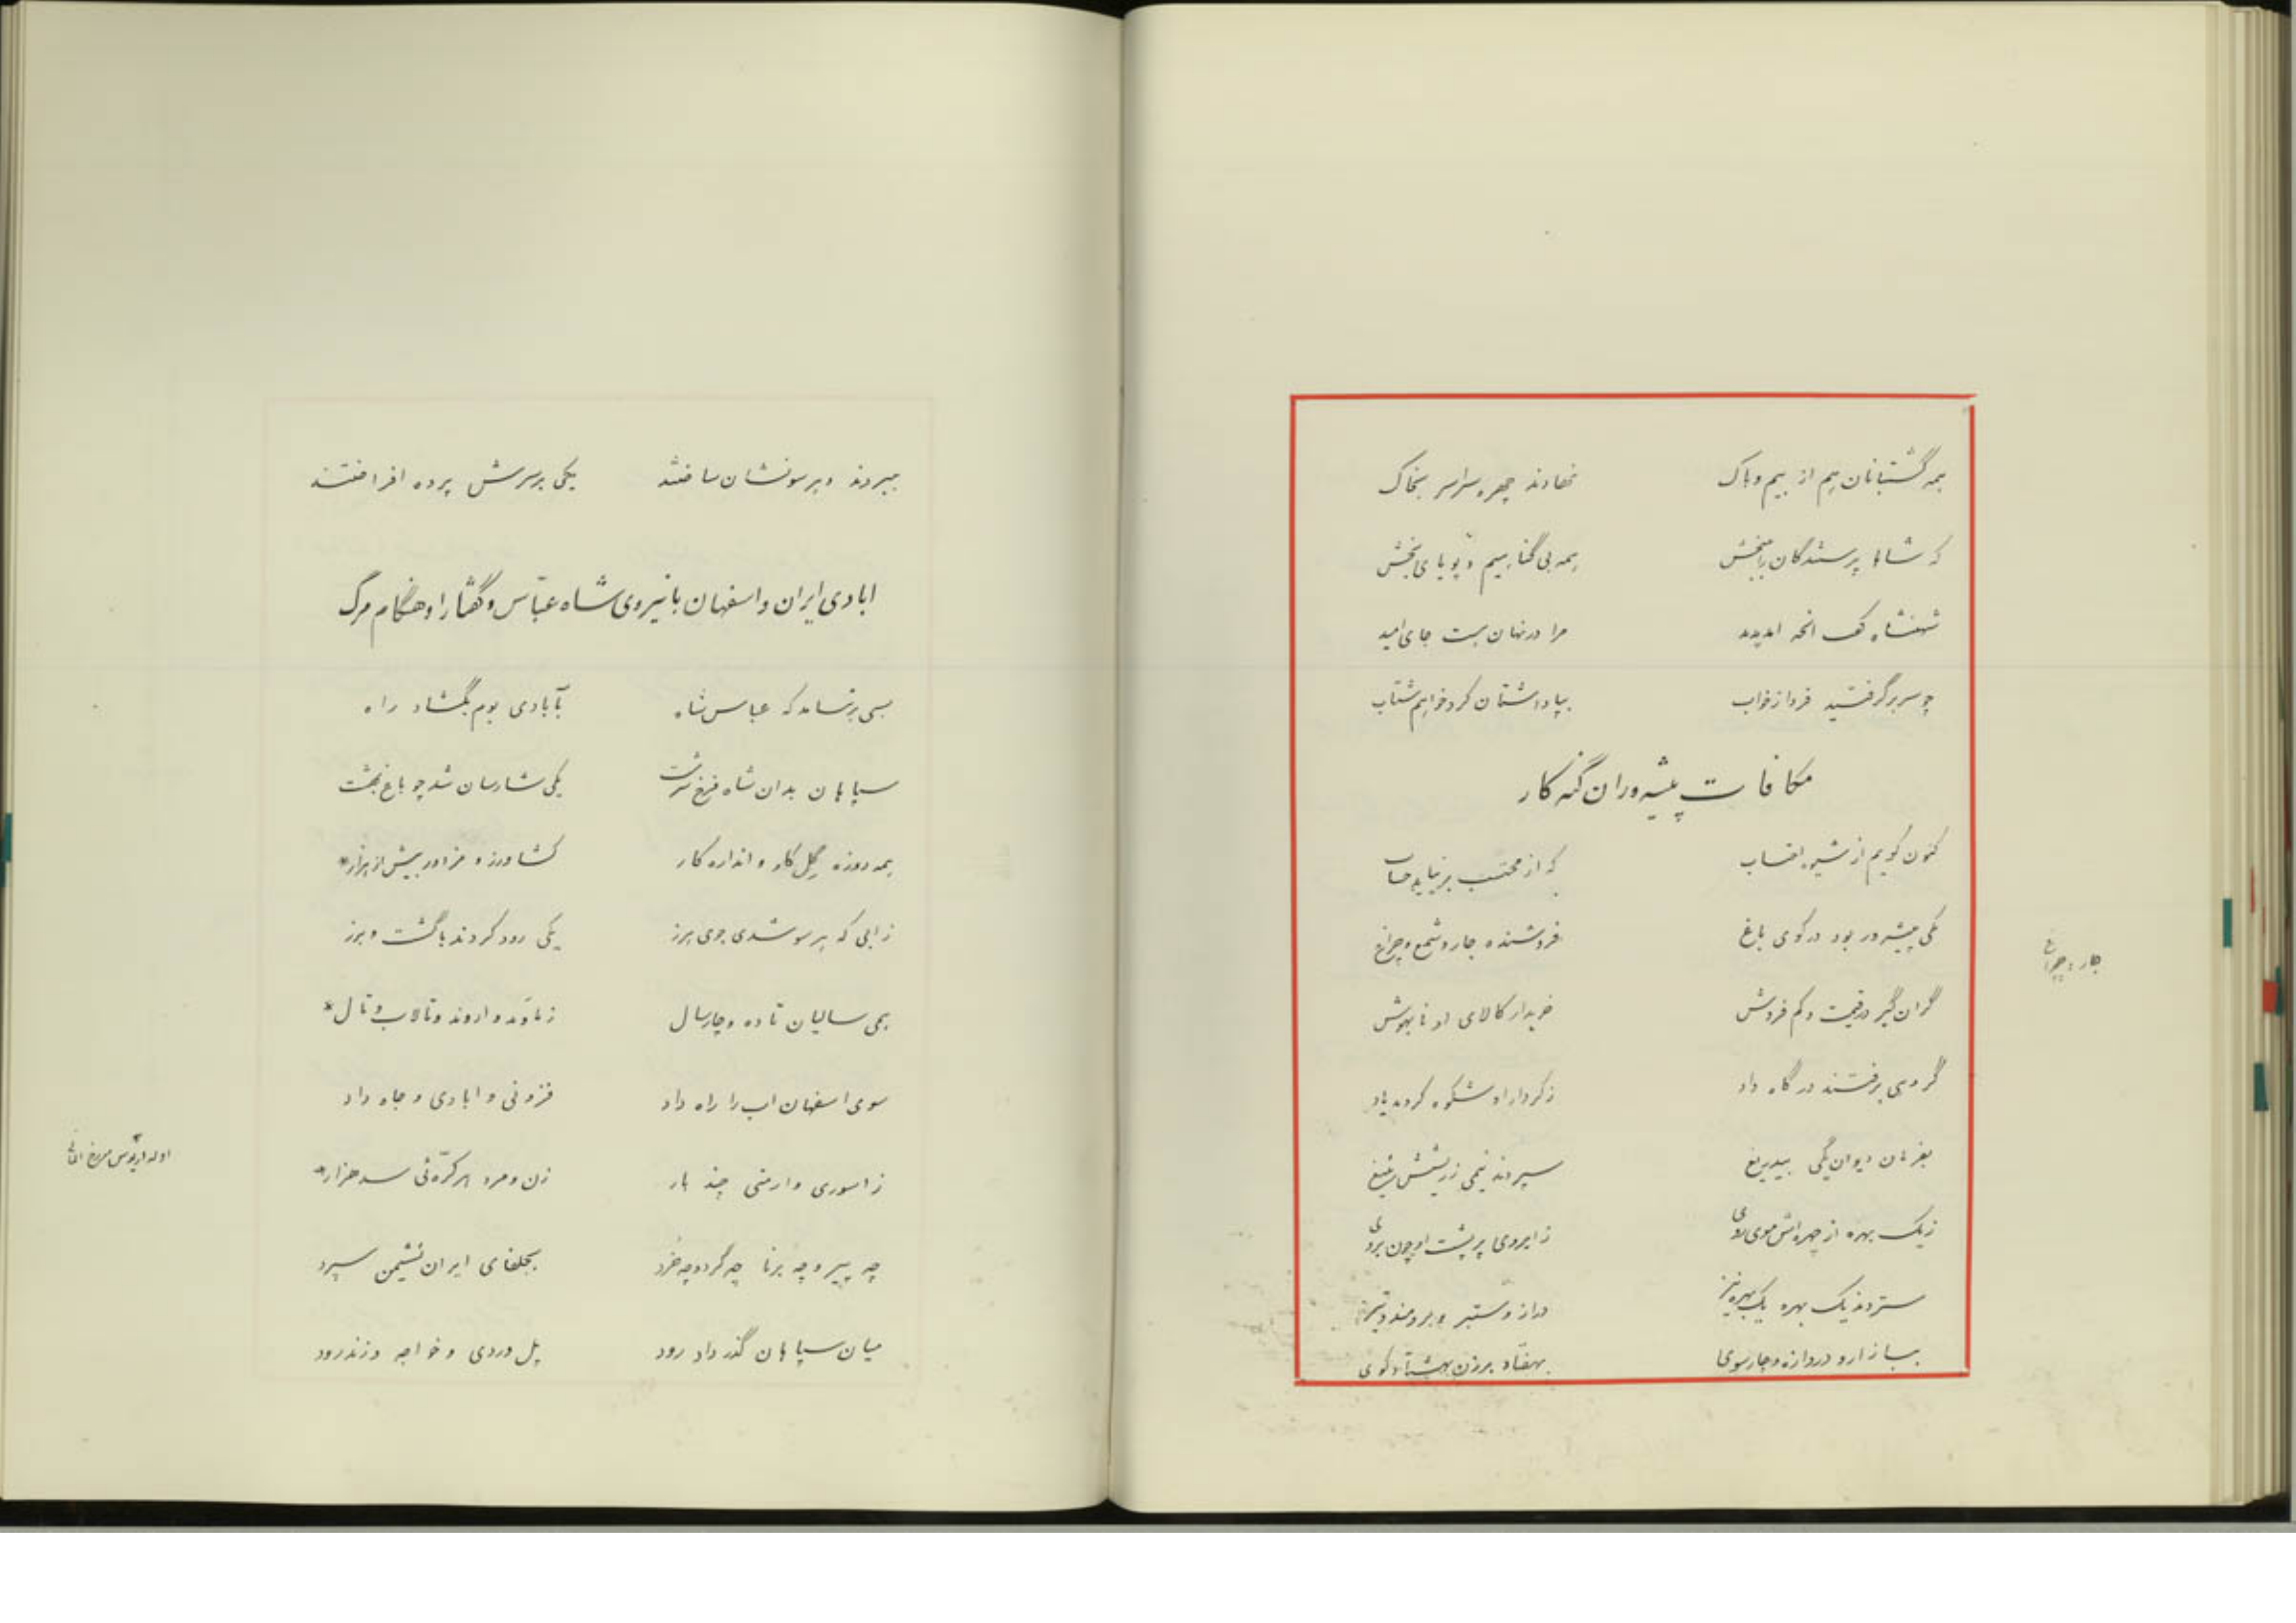 همه گشتبانان هم از بیم و باک    نهادند چهره سراسر بخاک
که شاها پرستندگان را ببخش    همه بی گناهیم و پویای بخش
شهنشاه گفت انچه امدپدید    مرا در نهان هست جای امید
چو سر برگرفتید فردا ز خواب    بپاداشتان کرد خواهم شتاب
مکافات پیشه‌وران گنه کار
کنون گویم از شیوه احتساب    که از محتسب بر نیاید حساب
یکی پیشه‌ور بود در کوی باغ    فروشنده جار و شمع و چراغ
جار و چراغ
گران گیر در قیمت و کم فروش    خریدار کالای او نا بهوش
گروهی برفتند در گاه داد    ز کردار او شکوه کردند یاد
بفرمان دیوان یگی بیدریغ    سپردند نیمی ز ریشش بتیغ
ز یک بهره از چهر اش موی روی    ز ابروی پر پشت او چون بروی
ستردند یک بهره یک بهره نیز    دراز و ستبر و برومند و تیز
ببازار و دروازه و چارسوی    بهفتاد برزن بهشتاد کوی
ببردند و هر سو نشان ساختند    یکی بر سرش پرده افراختند
ابادی ایران و اسفهان با نیروی شاه عباس و گفتار او هنگام مرگ
بسی بر نیامد که عباس شاه    بآبادی بوم بگشاد راه
سپاهان بدان شاه فرخ سرشت    یکی شارسان شد چو باغ بهشت
همه روزه گل کار و اندازه کار    کشاورز و مزدور بیش از هزار*
ز ابی که هر سو شدی جوی هرز    یکی رود کردند با گشت و برز
همی سالیان تا ده و چار سال    ز ناوند و اروند و تالاب و تال*
سوی اسفهان اب را راه داد    فزونی و ابادی و جاه داد
ز اسوری و ارمنی چند بار    زن و مرد هر کرّه‌ئی سه هزار*
چه پیر و چه برنا چه گرد و چه خرد    بجلفای ایران نشیمن سپرد
میان سپاهان گذر داد رود    پل وردی و خواجه و زنده رود